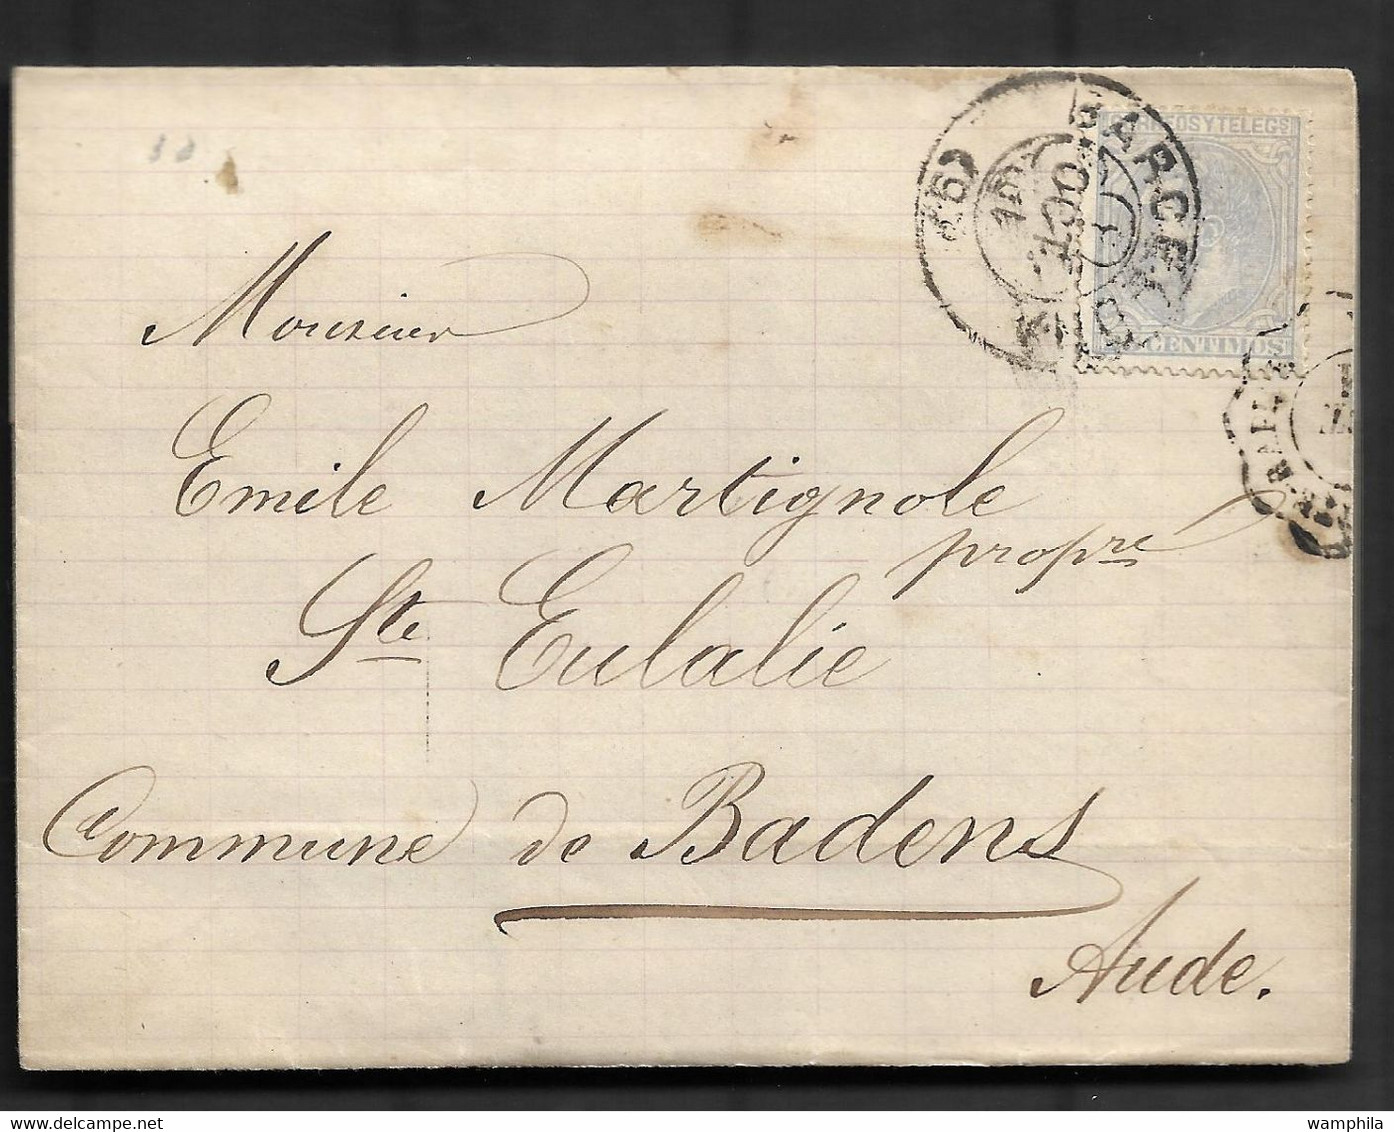 BARCELONA
(26)
OCT
CORREOS Y TELEGS
CENTIMOS
Monsieur
Emile Martignole
propre
Ste Eulalie
Commune de Badens
Aude.
www.delcampe.net
wamphila